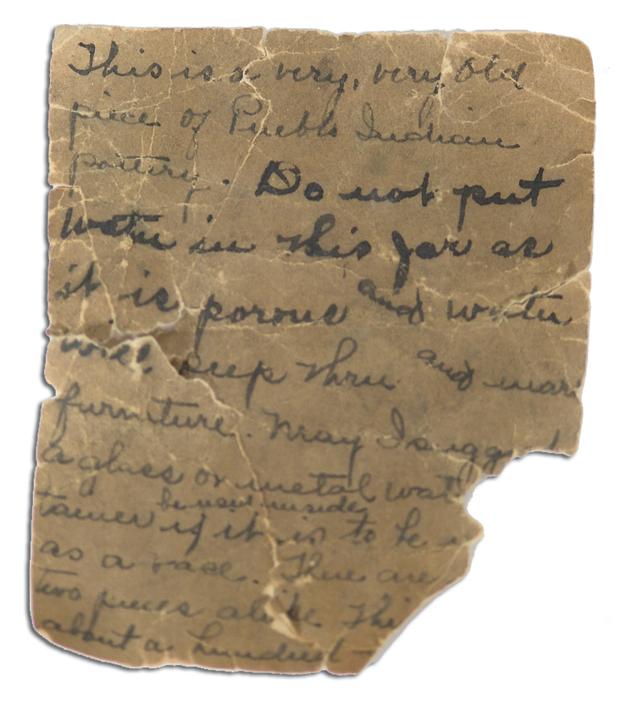 This is a very, very old
piece of Pueblo Indian
pottery. Do not put
water in this jar as
it is porous and water
will seep thru and mar
furniture. May I sugg
a glass or metal wat
tainer be used inside if it is to be u
as a vase. There are
two pieces alike This
about a hundred